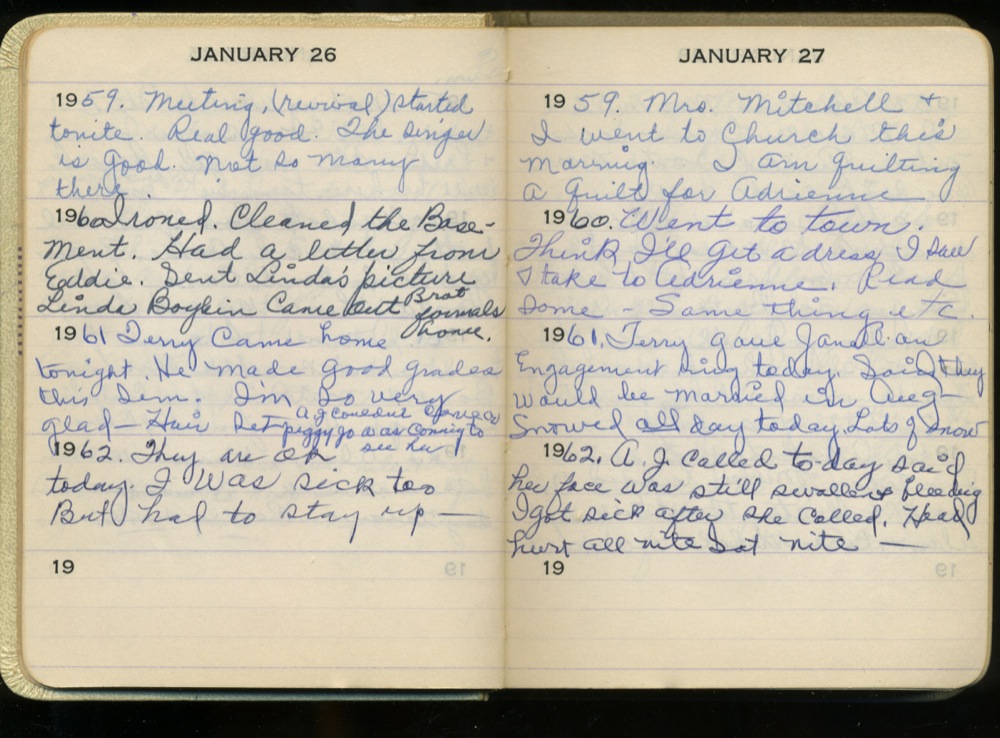 JANUARY 26
1959. Meeting, (revival) started
tonite. Real good. The singer
is good. Not so many
there.
1960 Ironed. Cleaned the Base-
ment. Had a letter from
Eddie. Sent Linda's picture
Linda Boykin Came out Brot
formals
home.
1961 Terry Came home
tonight. He made good grades
this Sem. I'm so very
glad — Hair Set A.J. couldn't come as
piggy Jo was coming to
see her
1962. They are OK
today. I was sick too
But had to stay up —
19
JANUARY 27
1959. Mrs. Mitchell +
I went to Church this
morning. I am quilting
a quilt for Adrienne
1960. Went to town.
Think I'll get a dress I saw
& take to Adrienne. Read
some - Same thing etc.
1961. Terry gave Janell an
Engagement ring today. Said they
would be married in Aug —
Snowed all day today. Lots of snow
1962. A.J. called to-day said
her face was still swollen & bleeding
I got sick after she called. Head
hurt all nite Sat nite —
19